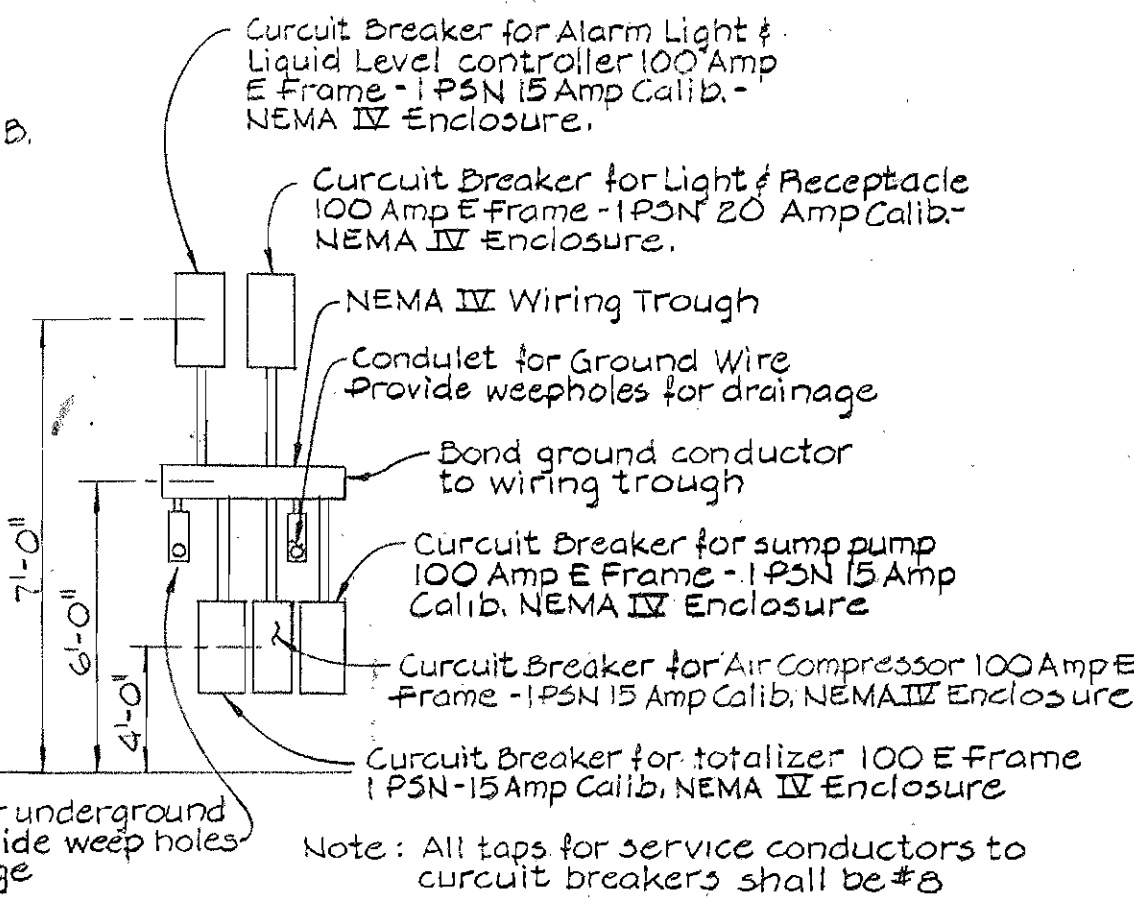 Curcuit Breaker for Alarm Light &
Liquid Level controller 100 Amp
E Frame - 1 PSN 15 Amp Calib. -
NEMA IV Enclosure.
B.
Curcuit Breaker for Light & Receptacle
100 Amp E Frame - 1 PSN 20 Amp Calib.-
NEMA IV Enclosure.
NEMA IV Wiring Trough
Condulet for Ground Wire
Provide weepholes for drainage
Bond ground conductor
to wiring trough
7'-0"
6'-0"
4'-0"
Curcuit Breaker for sump pump
100 Amp E Frame - 1 PSN 15 Amp
Calib. NEMA IV Enclosure
Curcuit Breaker for Air Compressor 100 Amp E
Frame - 1 PSN 15 Amp Calib. NEMA IV Enclosure
Curcuit Breaker for totalizer 100 E Frame
1 PSN - 15 Amp Calib. NEMA IV Enclosure
r underground
ide weep holes
ge
Note: All taps for service conductors to
curcuit breakers shall be #8